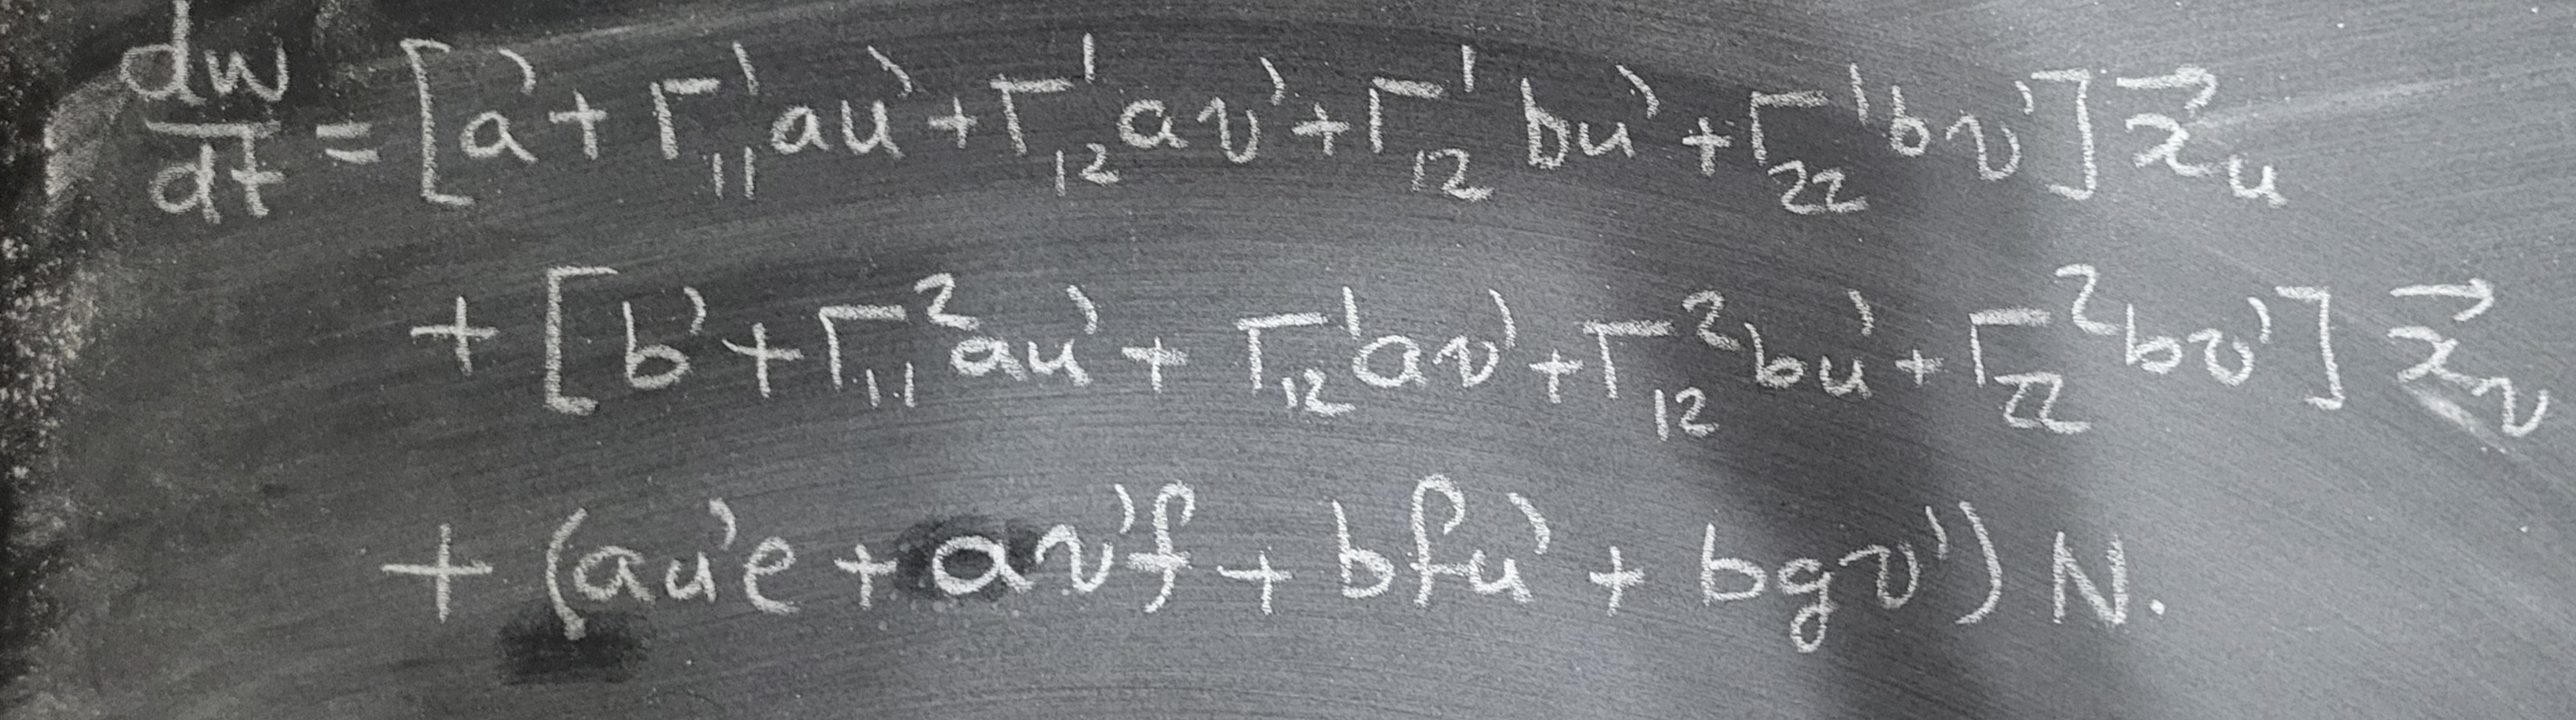 dw/dt = [a' + Γ₁₁¹au' + Γ₁₂¹av' + Γ₁₂¹bu' + Γ₂₂¹bv'] x⃗ᵤ
+ [b' + Γ₁₁²au' + Γ₁₂¹av' + Γ₁₂²bu' + Γ₂₂²bv'] x⃗ᵥ
+ (au'e + av'f + bfu' + bgv') N.